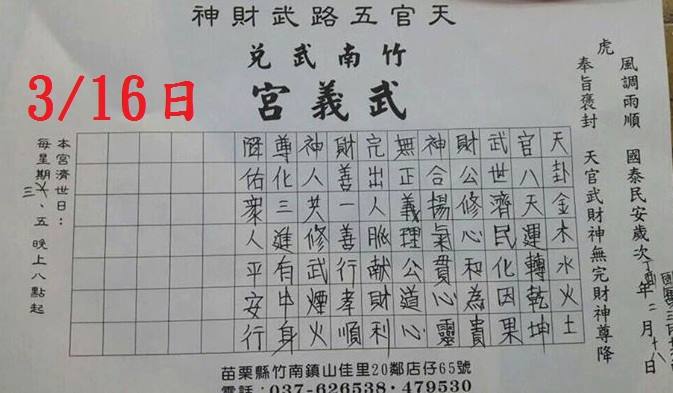 天官五路武財神
竹南武兌
武義宮
3/16日
風調雨順 國泰民安歲次丁酉年二月十八
虎
奉旨褒封 天官武財神無完財神尊降
天卦金木水火土
官八天運轉乾坤
武世濟民化因果
財公修心和為貴
神合揚氣貫心靈
無正義理公道心
完出人脈献財利
財善一善行孝順
神人共修武煙火
尊化三進有中身
降佑眾人平安行
本宮濟世日：
每星期三、五晚上八點起
苗栗縣竹南鎮山佳里20鄰店仔65號
電話：037-626538・479530